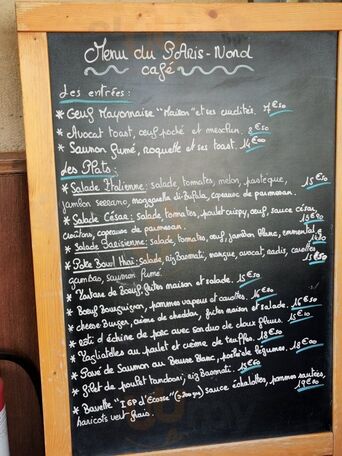 Menu du PARis-Nord
café
Les entrées:
* Oeuf Mayonnaise "Maison" et ses crudités. 7€50
* Avocat toast, œuf poché et mesclun. 8€50
* Saumon fumé, roquette et ses toast. 14€00
Les Plats:
* Salade Italienne: salade, tomates, melon, pastèque,
jambon serrano, mozzarella di Bufala, copeaux de parmesan. 15€50
* Salade César: Salade, tomates, poulet crispy, œuf, sauce césar,
croûtons, copeaux de parmesan.
* Salade Parisienne: salade, tomates, œuf, jambon blanc, emmental
* Poke Bowl Haï: Salade, riz Basmati, mangue, avocat, radis, carottes 15€50
gambas, saumon fumé.
* Tartare de Bœuf, frites maison et salade. 15€50
* Bœuf Bourguignon, pommes vapeur et carottes. 16€50
* cheese Burger, crème de cheddar, frites maison et salade. 15€50
* Rôti d'échine de porc avec son duo de choux fleurs. 15€10
* Tagliatelles au poulet et crème de truffes. 18€50
* Pavé de Saumon au Beurre Blanc, poêlée de légumes. 18€00
* filet de poulet tandoori, riz Basmati.
* Bavette "IGP d'Ecosse" sauce échalottes, pommes sautées,
haricots vert frais. 19€80